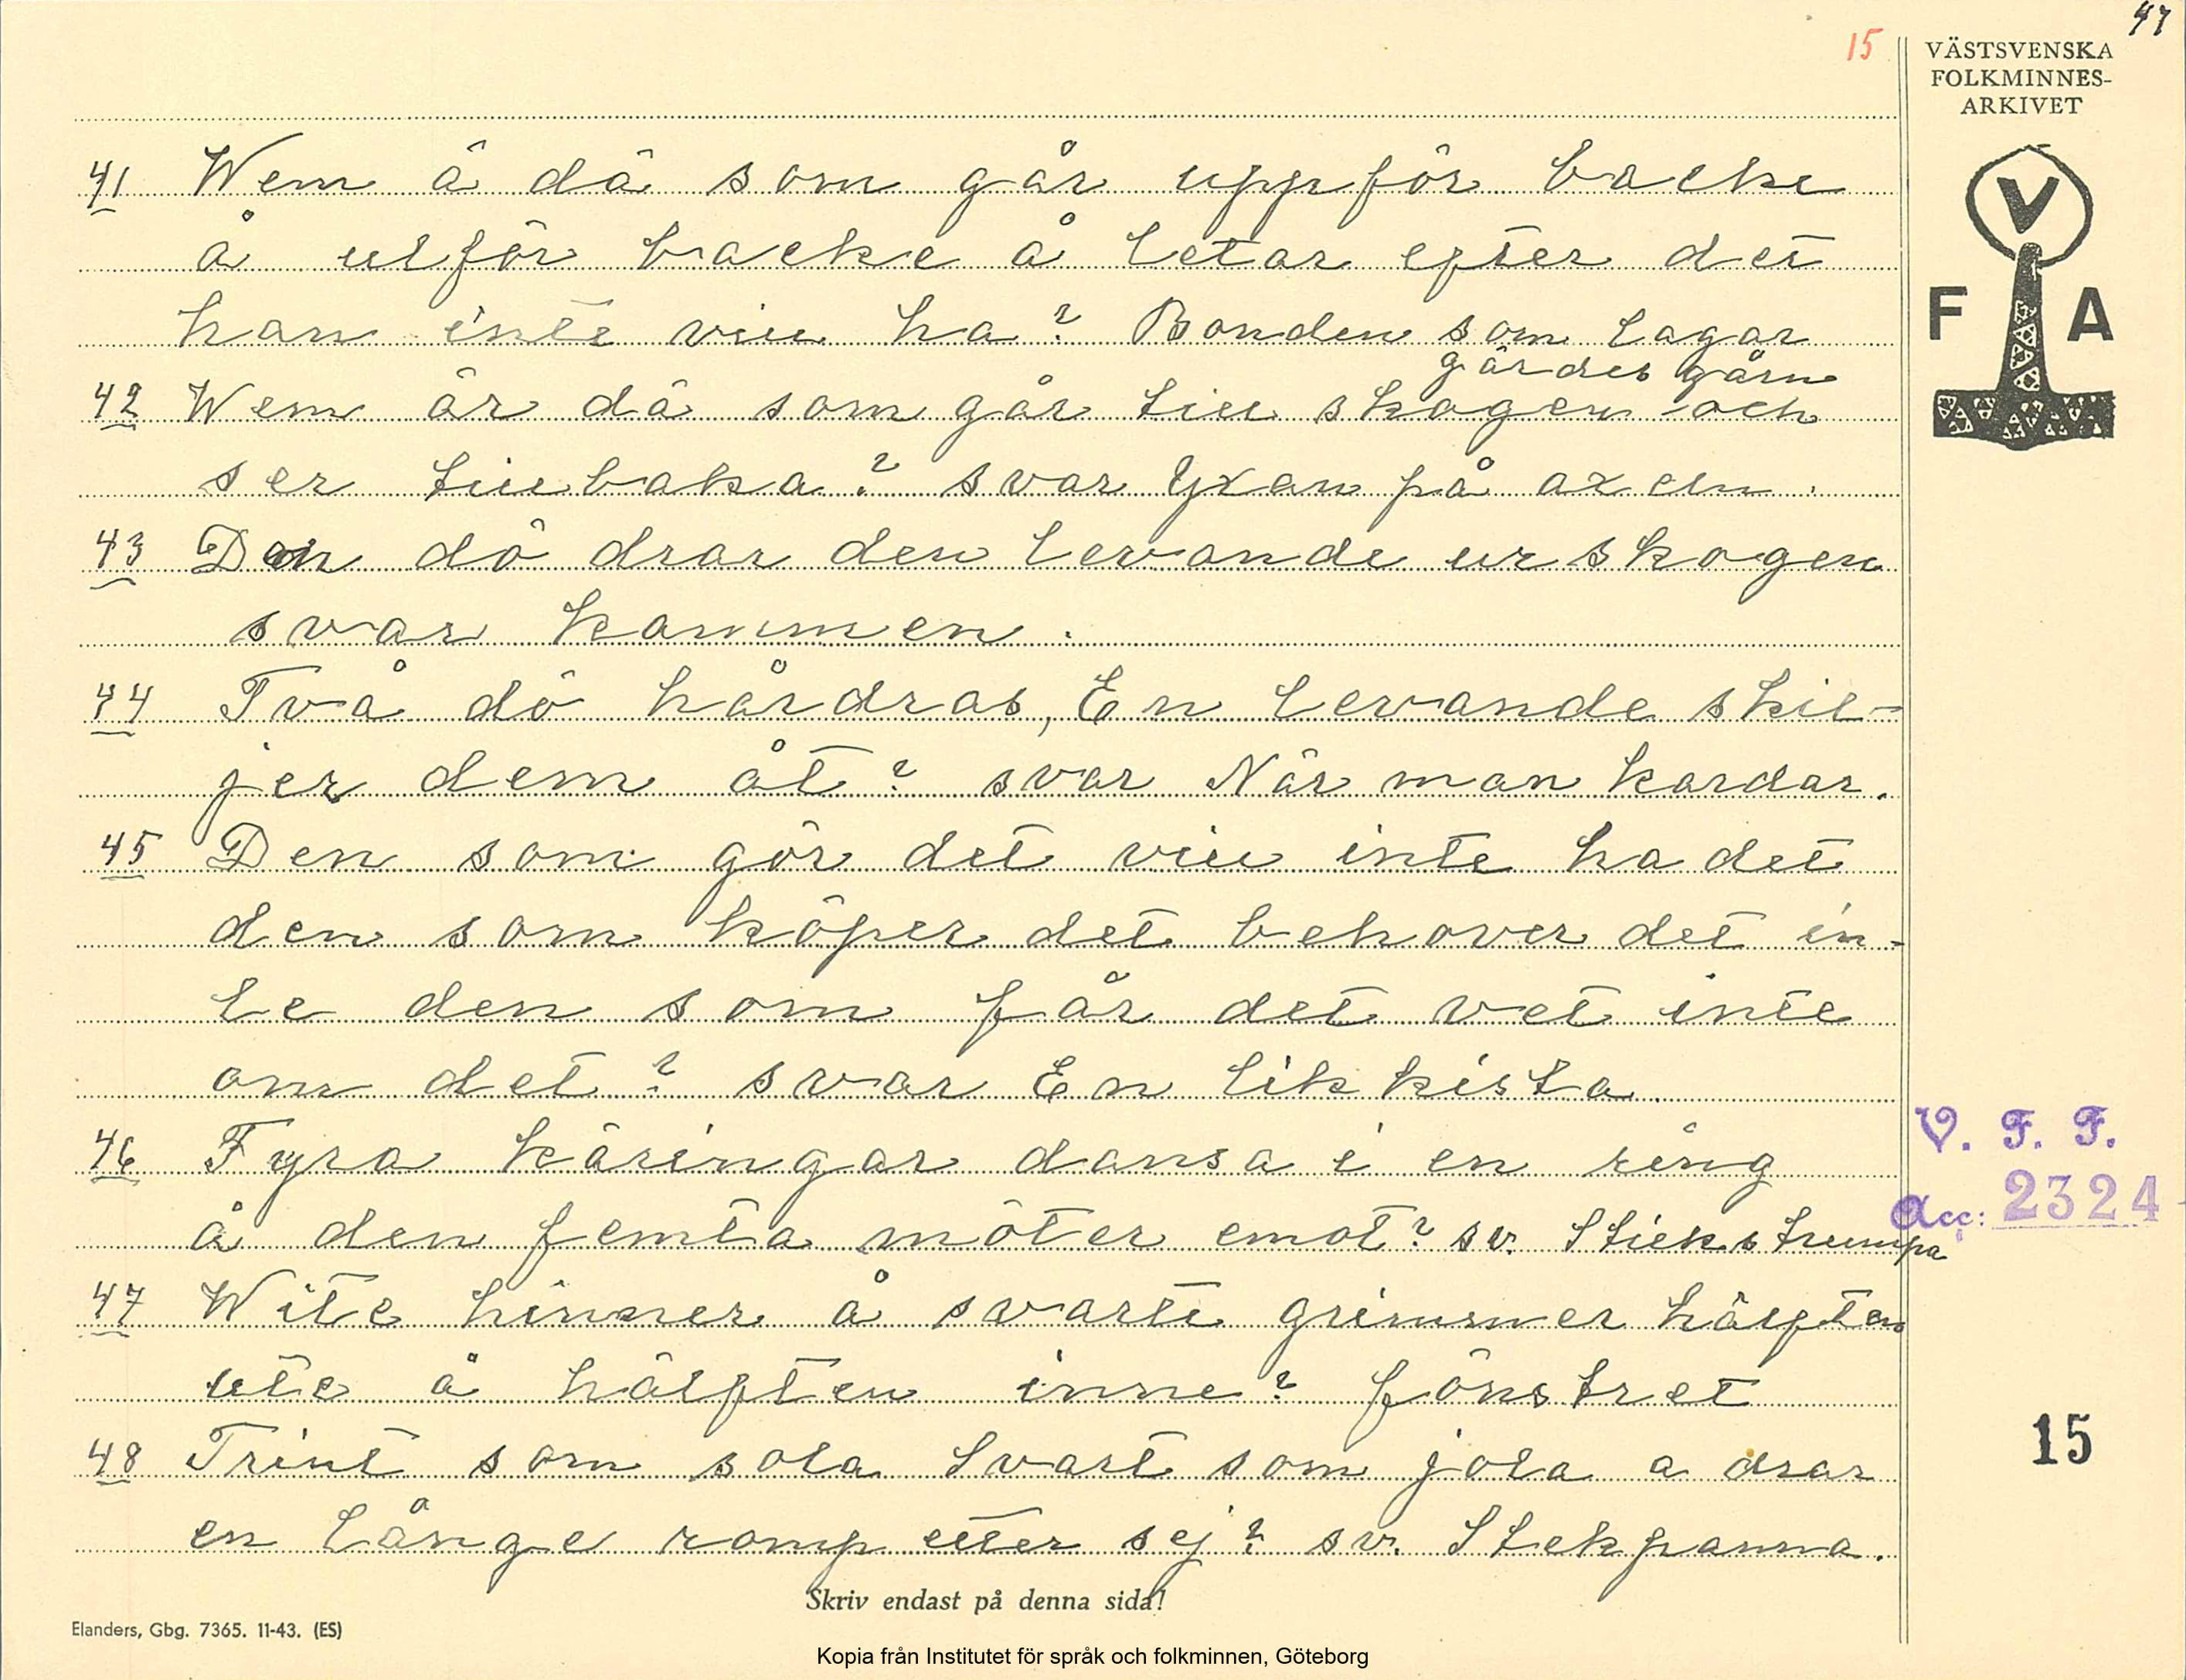 47
15
VÄSTSVENSKA
FOLKMINNES-
ARKIVET
V
F A
41 Wem ä dä som går uppför backe
å utför backe å letar efter det
han inte vill ha? Bonden som lagar
gärdes gårn
42 Wem är dä som går till skogen och
ser tillbaka? svar Yxan på axeln.
43 Den dö drar den levande ur skogen
svar kammen.
44 Två dö hårdras, En levande skil-
jer dem åt? svar När man kardar.
45 Den som gör det vill inte ha det
den som köper det behover det in-
te den som får det vet inte
om det? svar En likkista.
46 Fyra käringar dansa i en ring
å den femta möter emot? sv. Stickstrumpa
47 Wite hinner å svarte grimmer hälften
ute å hälften inne? fönstret
48 Trint som sola Svart som jola a drar
en långe romp etter sej? sv. Stekpanna.
V. F. F.
Acc: 2324
15
Skriv endast på denna sida!
Elanders, Gbg. 7365. 11-43. (ES)
Kopia från Institutet för språk och folkminnen, Göteborg